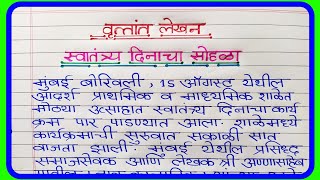 वृत्तांत लेखन
स्वातंत्र्य दिनाचा सोहळा
मुंबई बोरिवली, 15 ऑगस्ट येथील
आदर्श प्राथमिक व माध्यमिक शाळेत
मोठ्या उत्साहात स्वातंत्र्य दिनाचा कार्य
क्रम पार पाडण्यात आला. शाळेमध्ये
कार्यक्रमाची सुरुवात सकाळी सात
वाजता झाली. मुंबई येथील प्रसिद्ध
समाजसेवक आणि लेखक श्री अण्णासाहेब